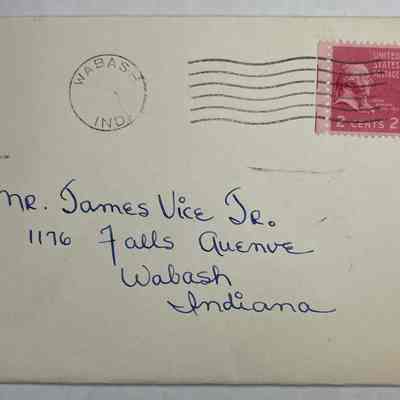 WABAS
IND.
UNITED
STATES
POSTAGE
2 CENTS 2
MR. James Vice Jr.
1176 Falls Auenue
Wabash
Indiana